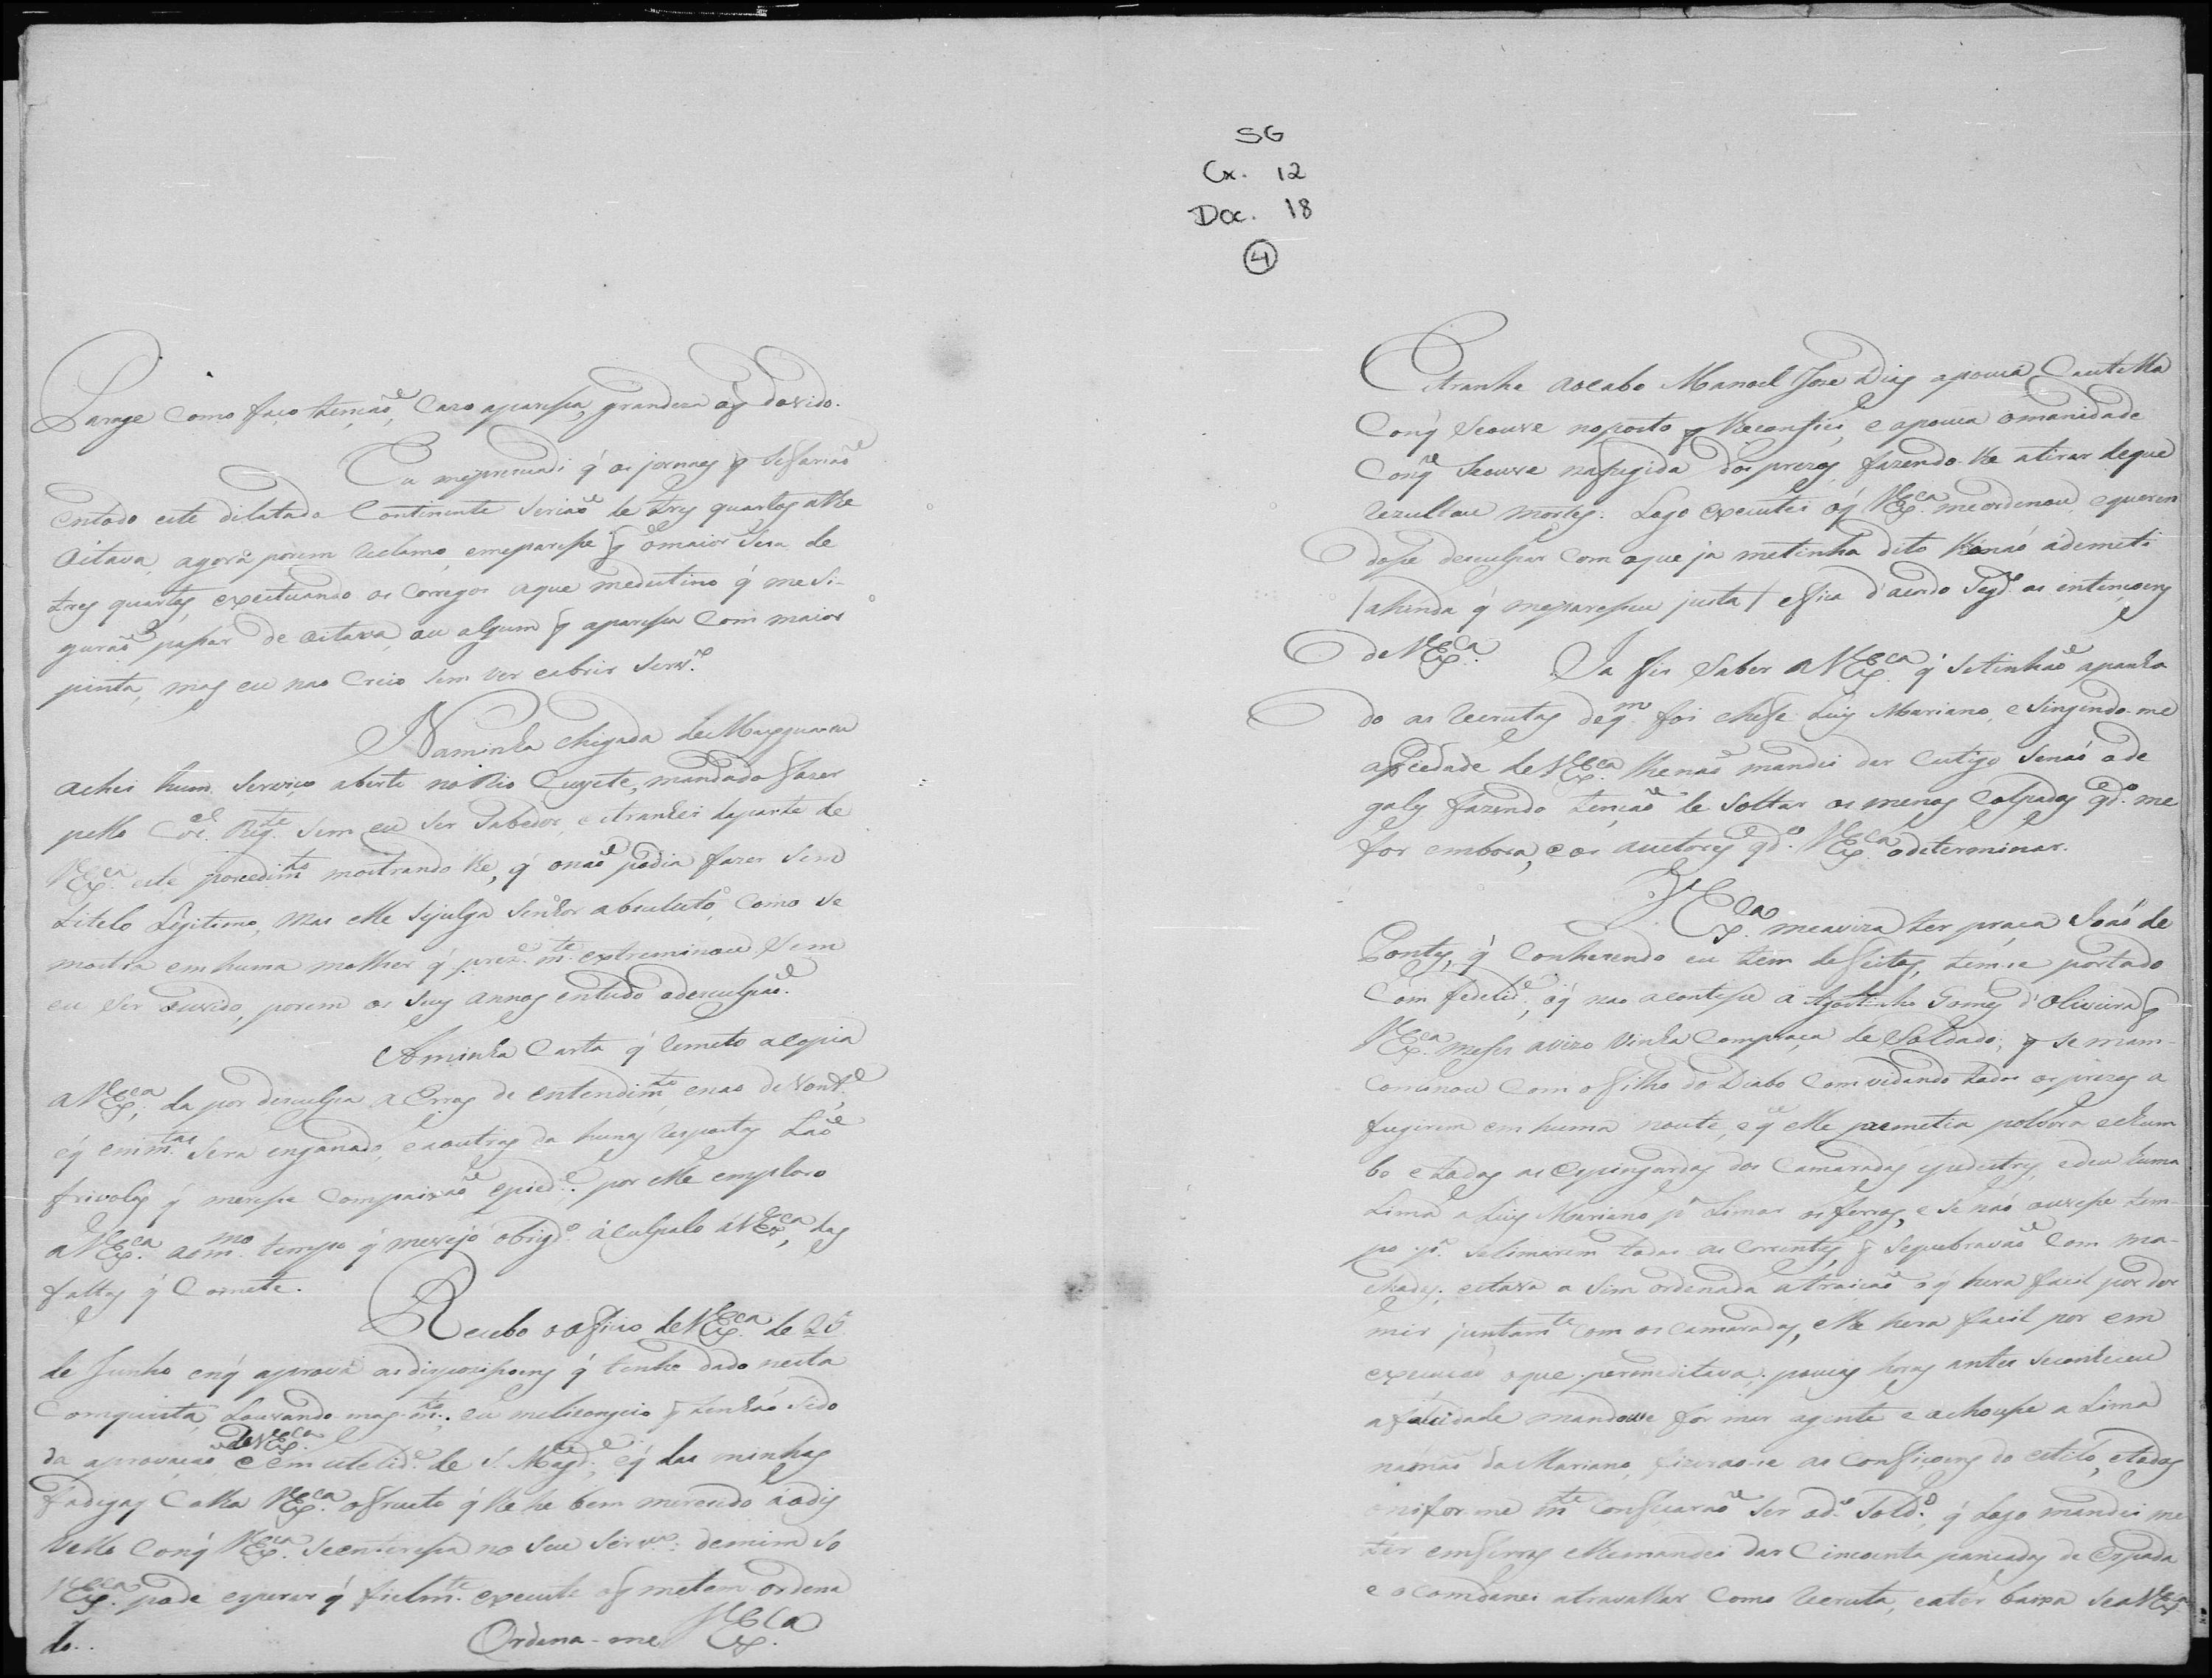 SG
Cx. 12
Doc. 18
4
Larage como faço tenção, Cazo aparessa, grandeza o q̃ dovido.
Eu mepersuadi q́ os jornaes q̃ sefarião
entodo este dilatado Continente serião de tres quartos athe
oitava, agora porem reclamo, emeparesse q̃ omaior sera de
tres quartos, expetuando os Corregos aque medestino q́ mesi-
gurão passar de oitava, ou algum q̃ aparessa Com maior
pinta, mas eu nao Creio sem ver eabrir servco.
Naminha chegada de
achei hum serviço aberto no Rio Cuyete, mandado fazer
pello Cel. Regte. sem eu ser sabedor, e estranhei daparte de
VExca. este procedimto mostrando lhe, q́ onão podia fazer sem
titelo Legitimo, mas elle sejulga senhor absuluto, Como se
mostra emhuma molher q́ prezte.mte. extreminou sem
eu ser ouvido, porem os seus annos entudo odesculpão.
Aminha Carta q́ remeto acopia
aVExca, da por desculpa a Erros de entendimto, enao deVontde,
eq́ emmtas sera enganado, eaoutras da humas respostas tão
frivolas q́ meresse Compaixão epiede. por elle emploro
aVExca. aommo. tempo q́ mevejo obrigdo. áculpalo áVExca, das
faltas q́ Comete.
Recebo ooficio deVExca. de 25
de Junho enq́ aprova asdispozissoens q́ tenho dado nesta
Comquista, Louvando-mas mto.; eu melisongeio q̃ tenhão sido
da aprovacao deVExca. e em utelide. de S. Magde., eq́ das minhas
fadigas Colha VExca. ofructo q́ lhe he bem merecido áodis
vello Conq́ VExca. seenteressa no seu servco. demim só
VExca. pode esperar q́ fielmte. execute oq̃ metem ordena
do.
Ordena-me VExca.
Estranhe aocabo Manoel Jose Dias apouca Cautella
Conq́ seouve noposto q̃ lheconfiei, e apouca omanidade
Conq̃ seouve nafugida dos prezos, fazendo-lhe atirar deque
rezultou mortes. Logo executei oq́ VExca. meordenou, equeren
dosse desculpar Com oque ja metinha dito lhenão ádemeti
/ahinda q́ meparesseu justa/ efica d'acordo segdo. as intençoens
deVExca.
Ja fis saber aVExca. q́ setinhão apanha
do os recrutas deqm. foi chefe Luis Mariano, e singindo-me
apiedade deVExca. lhenão mandei dar Castigo senão ode
gales fazendo tenção de soltar os menos Colpados qdo. me
for embora, e os auctores qdo. VExca. odeterminar.
VExca. meaviza ter praça João de
Pontes, q́ Conhecendo eu tem defeitos, tem-se portado
Com fedelide., oq́ nao acontesse a Agostinho Gomes d'Oliveira q̃
VExca. mefes avizo Vinha Compraça de Soldado; q̃ se mam-
comunou Com ofilho do Diabo Comvidando todos osprezos a
fugirem em huma noute, eq̃ elle prometia polvora echum
bo e todas as Espingardas dos Camaradas epedestres, edeu huma
Lima a Luis Mariano pa. Limar osferros, e se não ouvesse tem-
po pa. selimarem todas as Correntes, q̃ sequebravão Com ma-
chados; estava a sim ordenada atraicão oq́ hera facil por dor
mir juntamte. com os camaradas, elhe hera facil por em
execucao oque premeditava; poucas horas antes seconheceu
afalcidade mandouse for mar agente e achousse a Lima
namão do Mariano, fizerao-se as Confiçoens do estilo, etodos
oniforme mte. Confesarão ser odo. soldo., q́ Logo mandei me
ter emferros elhemandei dar Cincoenta pancadas de Espada
e o comdanei atravalhar Como recruta, eater baixa sea VExca.